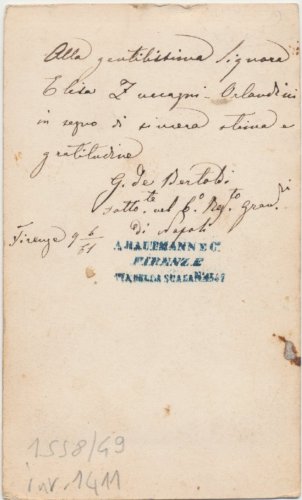 Alla gentilissima Signora
Elisa Zuccagni-Orlandini
in segno di sincera stima e
gratitudine
G. de Bertoldi
Sotto.te nel 6.o Reg.to Gran.di
di Napoli
Firenze 9 6/61
A. HAUTMANN E C.
FIRENZE
VIA DELLA SCALA
1558/49
inv. 1411